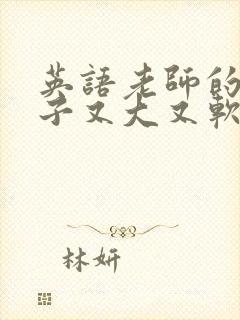 英語老師的
子又大又軟
林妍